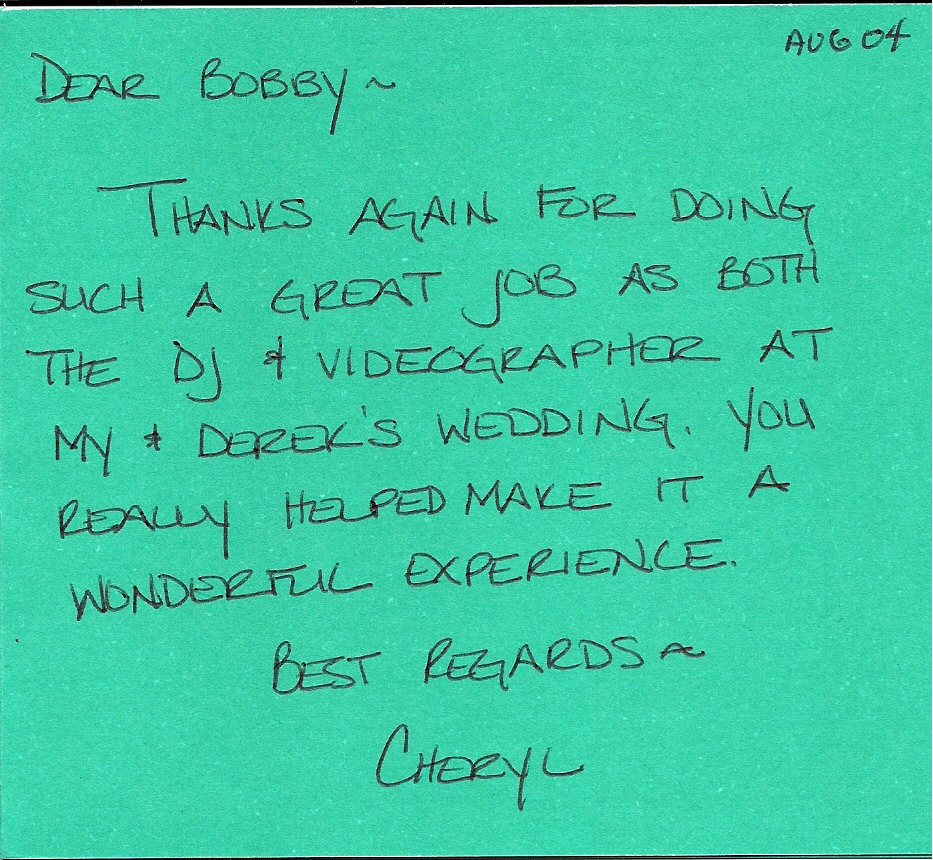 AUG 04
DEAR BOBBY ~
THANKS AGAIN FOR DOING
SUCH A GREAT JOB AS BOTH
THE DJ & VIDEOGRAPHER AT
MY & DEREK'S WEDDING. YOU
REALLY HELPED MAKE IT A
WONDERFUL EXPERIENCE.
BEST REGARDS ~
CHERYL